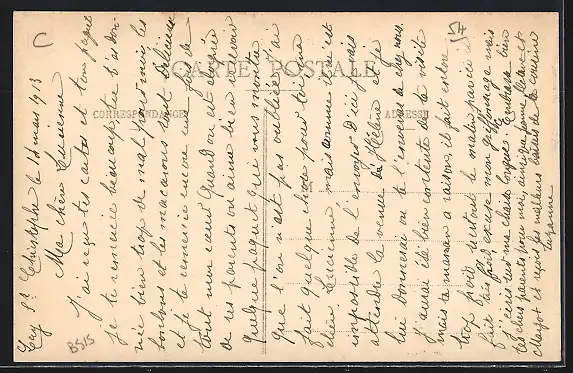 C
57
CARTE POSTALE
CORRESPONDANCE
ADRESSE
M
B515
Cay St Christophe le 14 mars 913
Ma chère Lucienne
J'ai reçu tes cartes et ton paquet
je te remercie beaucoup tu t'as don-
née bien trop de mal pour moi les
bonbons et les macarons sont délicieux
et je te remercie encore une fois de
tout mon cœur Quand on est éloigné
de ses parents on aime bien recevoir
quelque paquet qui vous montre
que l'on n'est pas oubliée j'ai
fait quelque chose pour toi ma
chère Lucienne mais comme il m'est
impossible de l'envoyer d'ici j'vais
attendre la venue de Hélène et je
lui donnerai on te l'enverras de chez nous.
J'aurai été bien contente de ta visite
mais ta maman a raison, il fait encore
trop froid surtout le matin par ici il
fait très froid excuse mon griffonnage mais
je écris sur ma chaise longue Embrasse bien
tes chers parents pour moi, ainsi que
Margot et reçois les meilleurs baisers de ta cousine
Suzanne